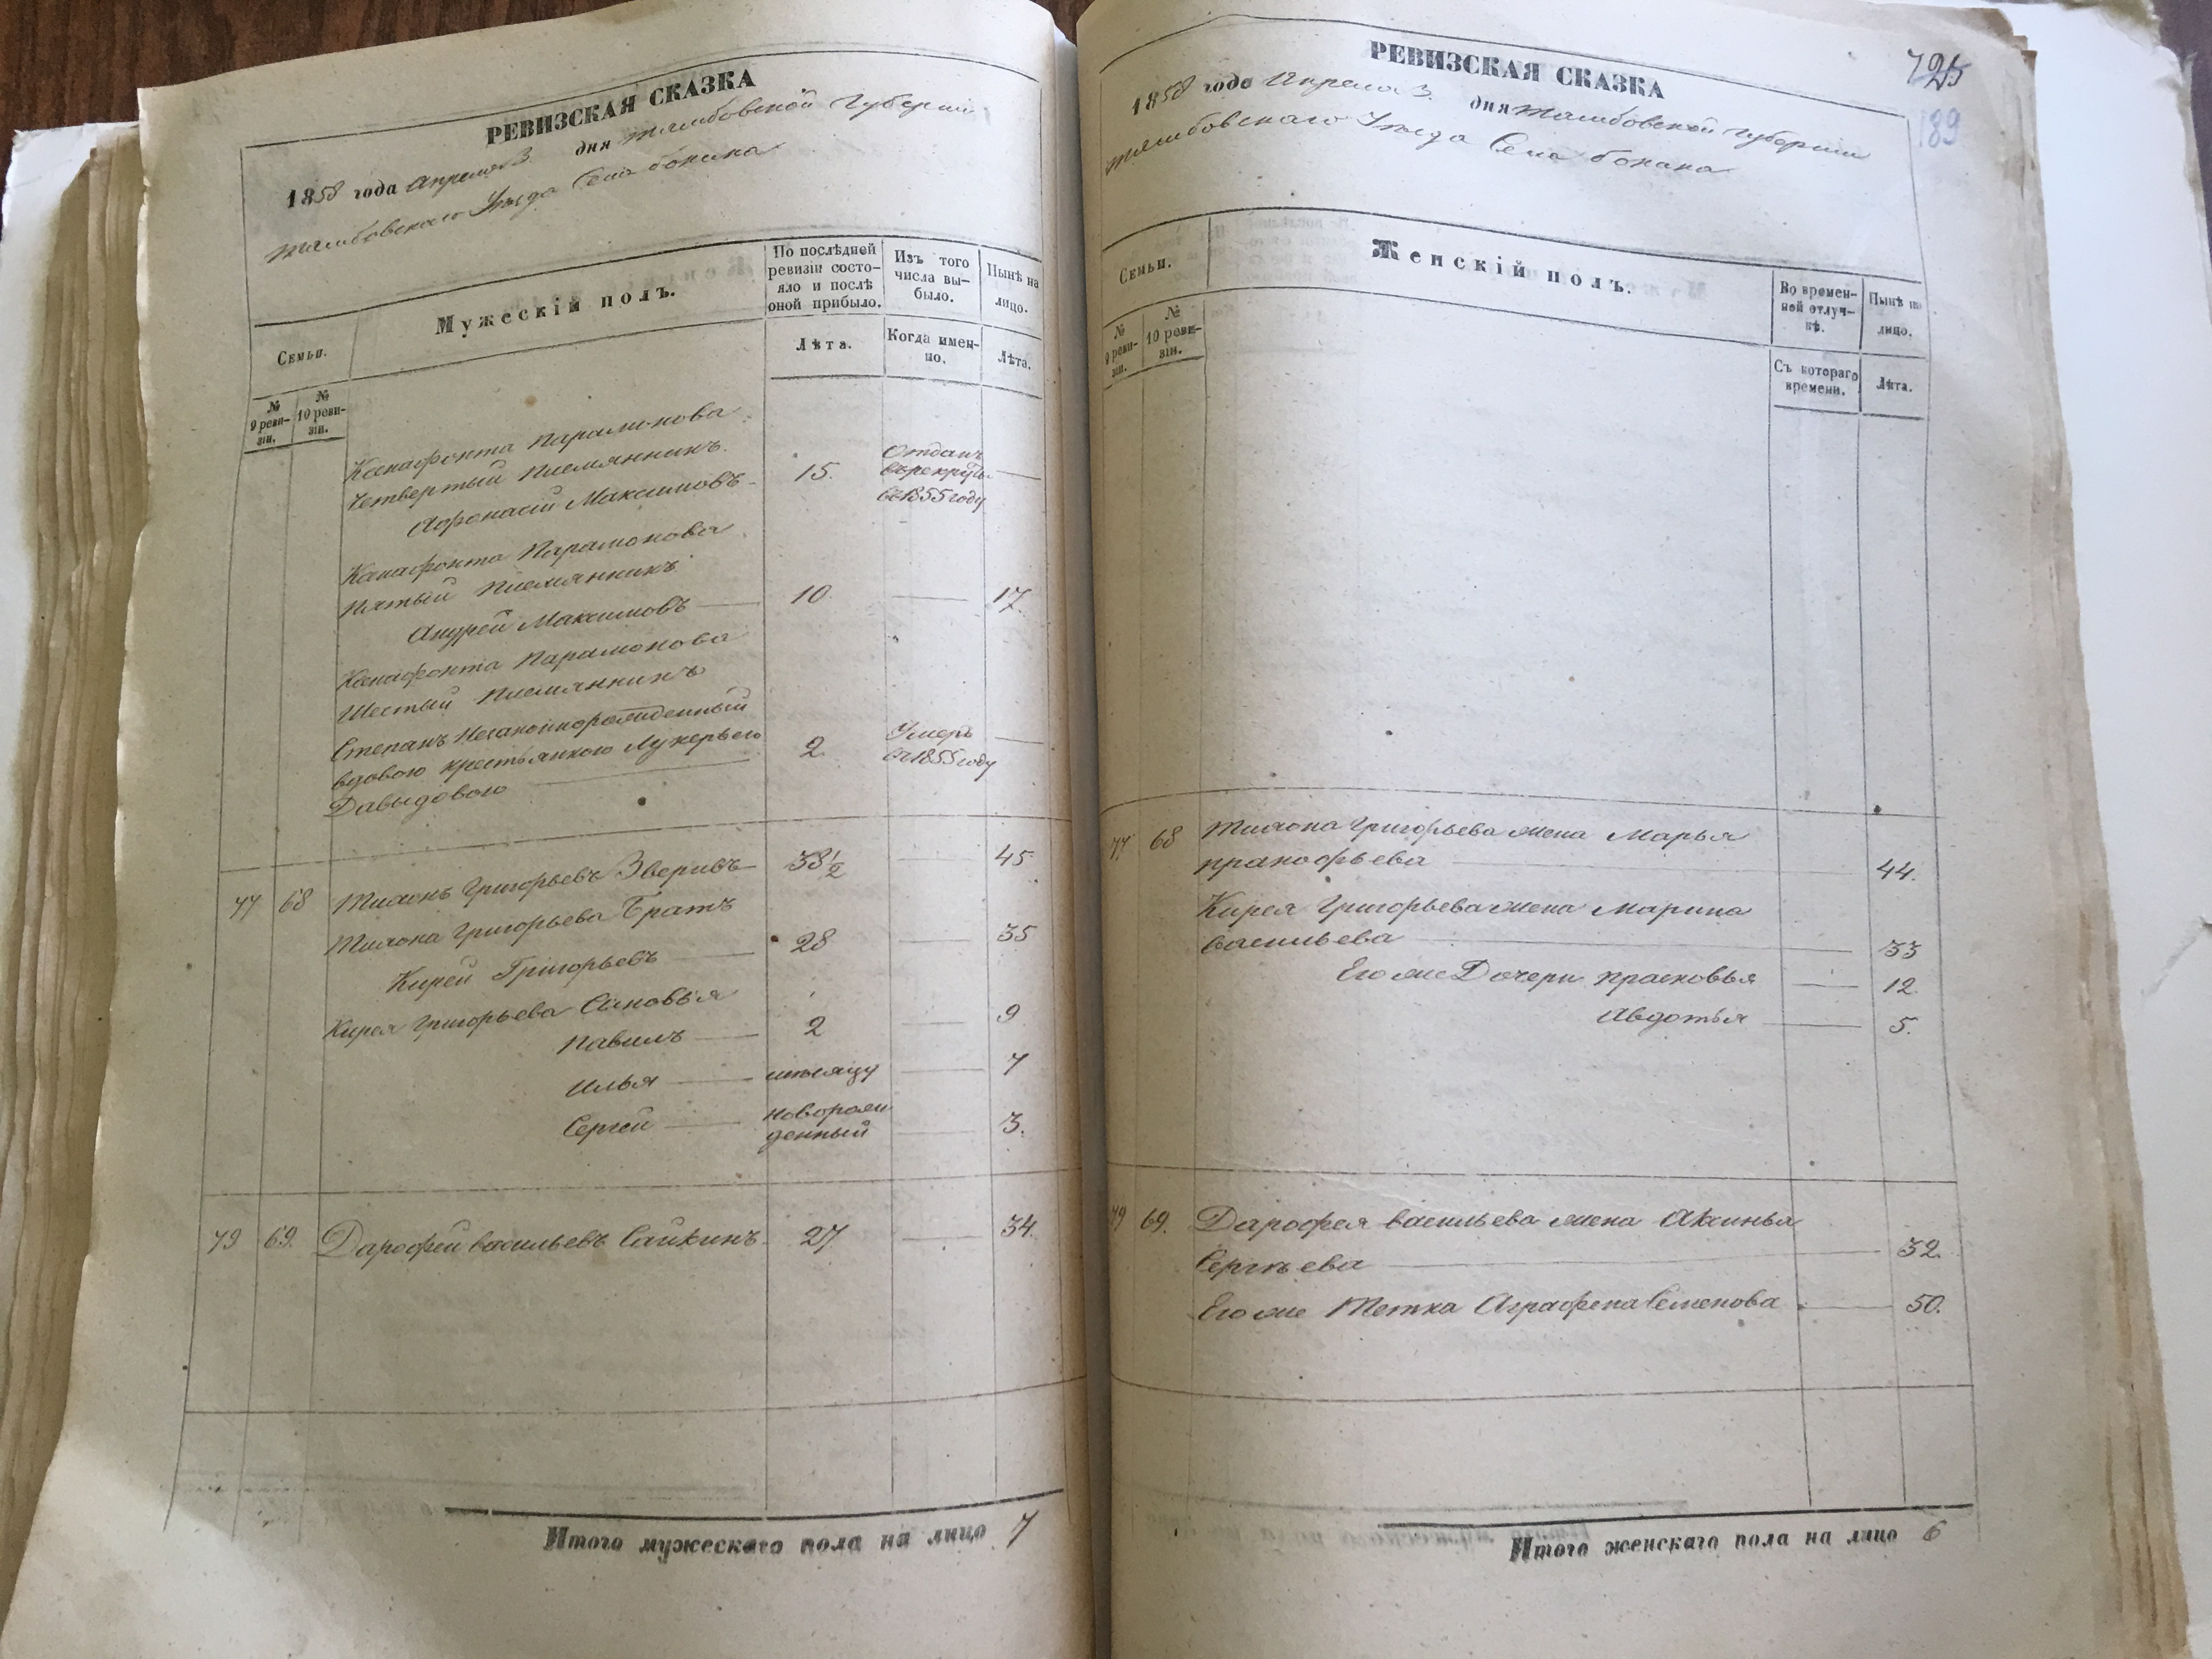 РЕВИЗСКАЯ СКАЗКА
1858 года Апреля 3. дня Тамбовской Губернии
Тамбовскаго Уѣзда Села Бокина
Семьи.
Мужескій полъ.
По послѣдней ревизіи состо-
яло и послѣ
оной прибыло.
Изъ того
числа вы-
было.
Нынѣ на
лицо.
№
9 реви-
зіи.
№
10 реви-
зіи.
Лѣта.
Когда имен-
но.
Лѣта.
Ксенафонта Парамонова
Четвертый племянникъ
Афонасій Максимовъ 15. Отданъ
въ рекруты
въ 1855 году
Ксенафонта Парамонова
пятый племянникъ
Андрей Максимовъ 10. 17.
Ксенафонта Парамонова
Шестый племянникъ
Степанъ Незаконнорожденный
вдовою крестьянкою Лукерьею 2. Умеръ
въ 1855 году
Давыдовою
77 68 Тихонъ Григорьевъ Зверивъ 38½ 45
Тихона Григорьева Братъ
Кирей Григорьевъ 28 35
Кирея Григорьева Сыновья
Павилъ 2 9
Илья 7
Сергей новорож
денный 3.
79 69. Дарофей васильевъ Сайкинъ 27 34.
Итого мужескаго пола на лицо 7
725
189
РЕВИЗСКАЯ СКАЗКА
1858 года Апреля 3. дня Тамбовской губернии
Тамбовскаго Уѣзда Села Бокина
Семьи.
Женскій полъ.
Во времен-
ной отлуч-
кѣ.
Нынѣ на
лицо.
№
9 реви-
зіи.
№
10 реви-
зіи.
Съ котораго
времени.
Лѣта.
77 68 Тихона Григорьева жена Марья
пракофьева 44.
Кирея Григорьева жена Марина
васильева 33
Его же Дочери прасковья 12.
Авдотья 5.
79 69. Дарофея васильева жена Аксинья
Сергѣева 32.
Его же Тетка Аграфена Семенова 50.
Итого женскаго пола на лицо 6